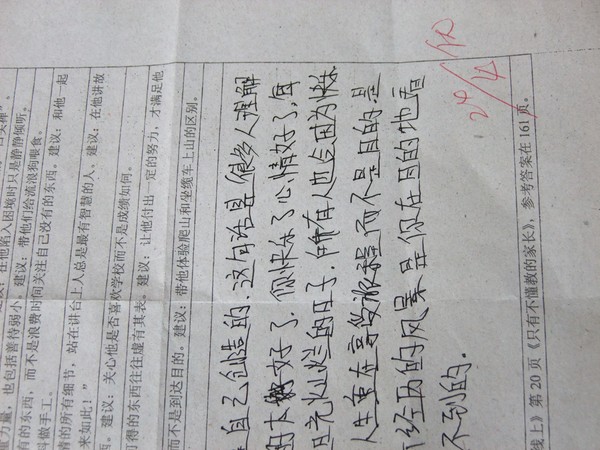 在他陷入困境时只是静静倾听。
力量，也包括善待弱小。建议：带他们给流浪狗喂食。
有的东西，而不是浪费时间关注自己没有的东西。建议：和他一起
料做手工。
情的所有细节，站在讲台上人总是最有智慧的人。建议：在他讲故
来如此！”
西。建议：关心他是否喜欢学校而不是成绩如何。
可得的东西往往虚有其表。建议：让他付出一定的努力，才满足他
而不是到达目的。建议：带他体验爬山和坐缆车上山的区别。
是自己创造的，这句话是很多人理解
好了，你快乐了心情好了，每
日光灿烂的日子，所有人也会因为快乐
人生重在享受旅程而不是目的是
经历的风景是你在目的地看
不到的。
线上》第 20 页《只有不懂教的家长》，参考答案在 161 页。